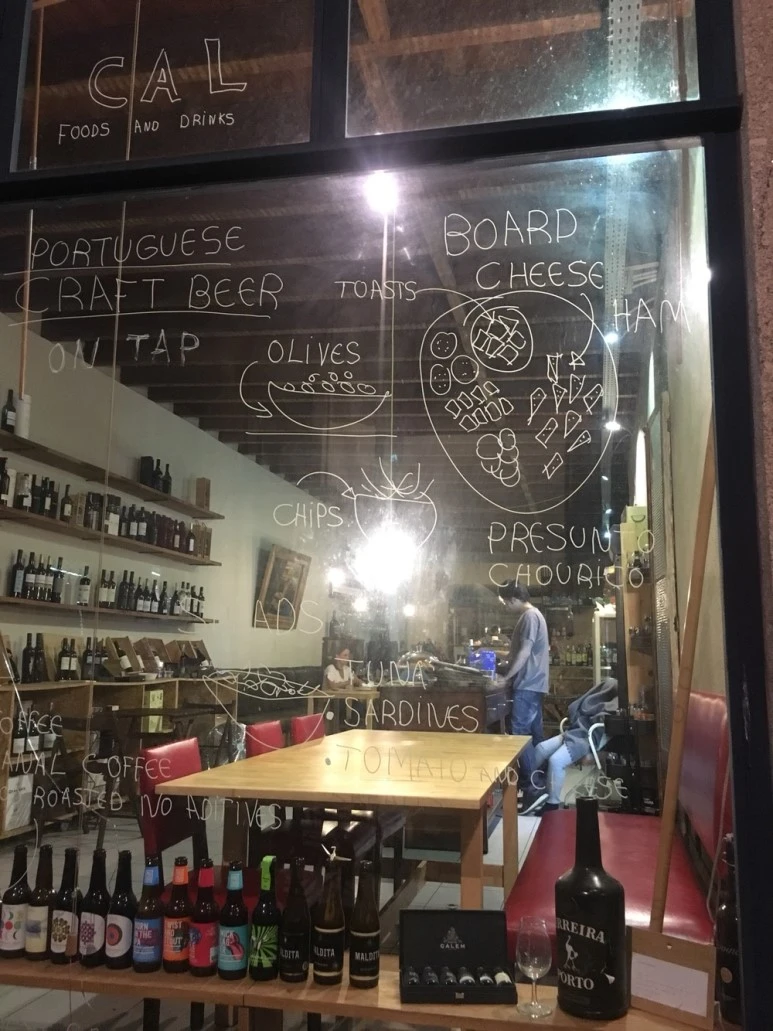 CAL
FOODS AND DRINKS
PORTUGUESE
CRAFT BEER
ON TAP
BOARD
CHEESE
TOASTS
HAM
OLIVES
CHIPS
PRESUNTO
CHOURIÇO
TUNA
• SARDINES
• TOMATO AND
COFFEE
ROASTED NO ADITIVES
MALDITA
CALEM
PORTO